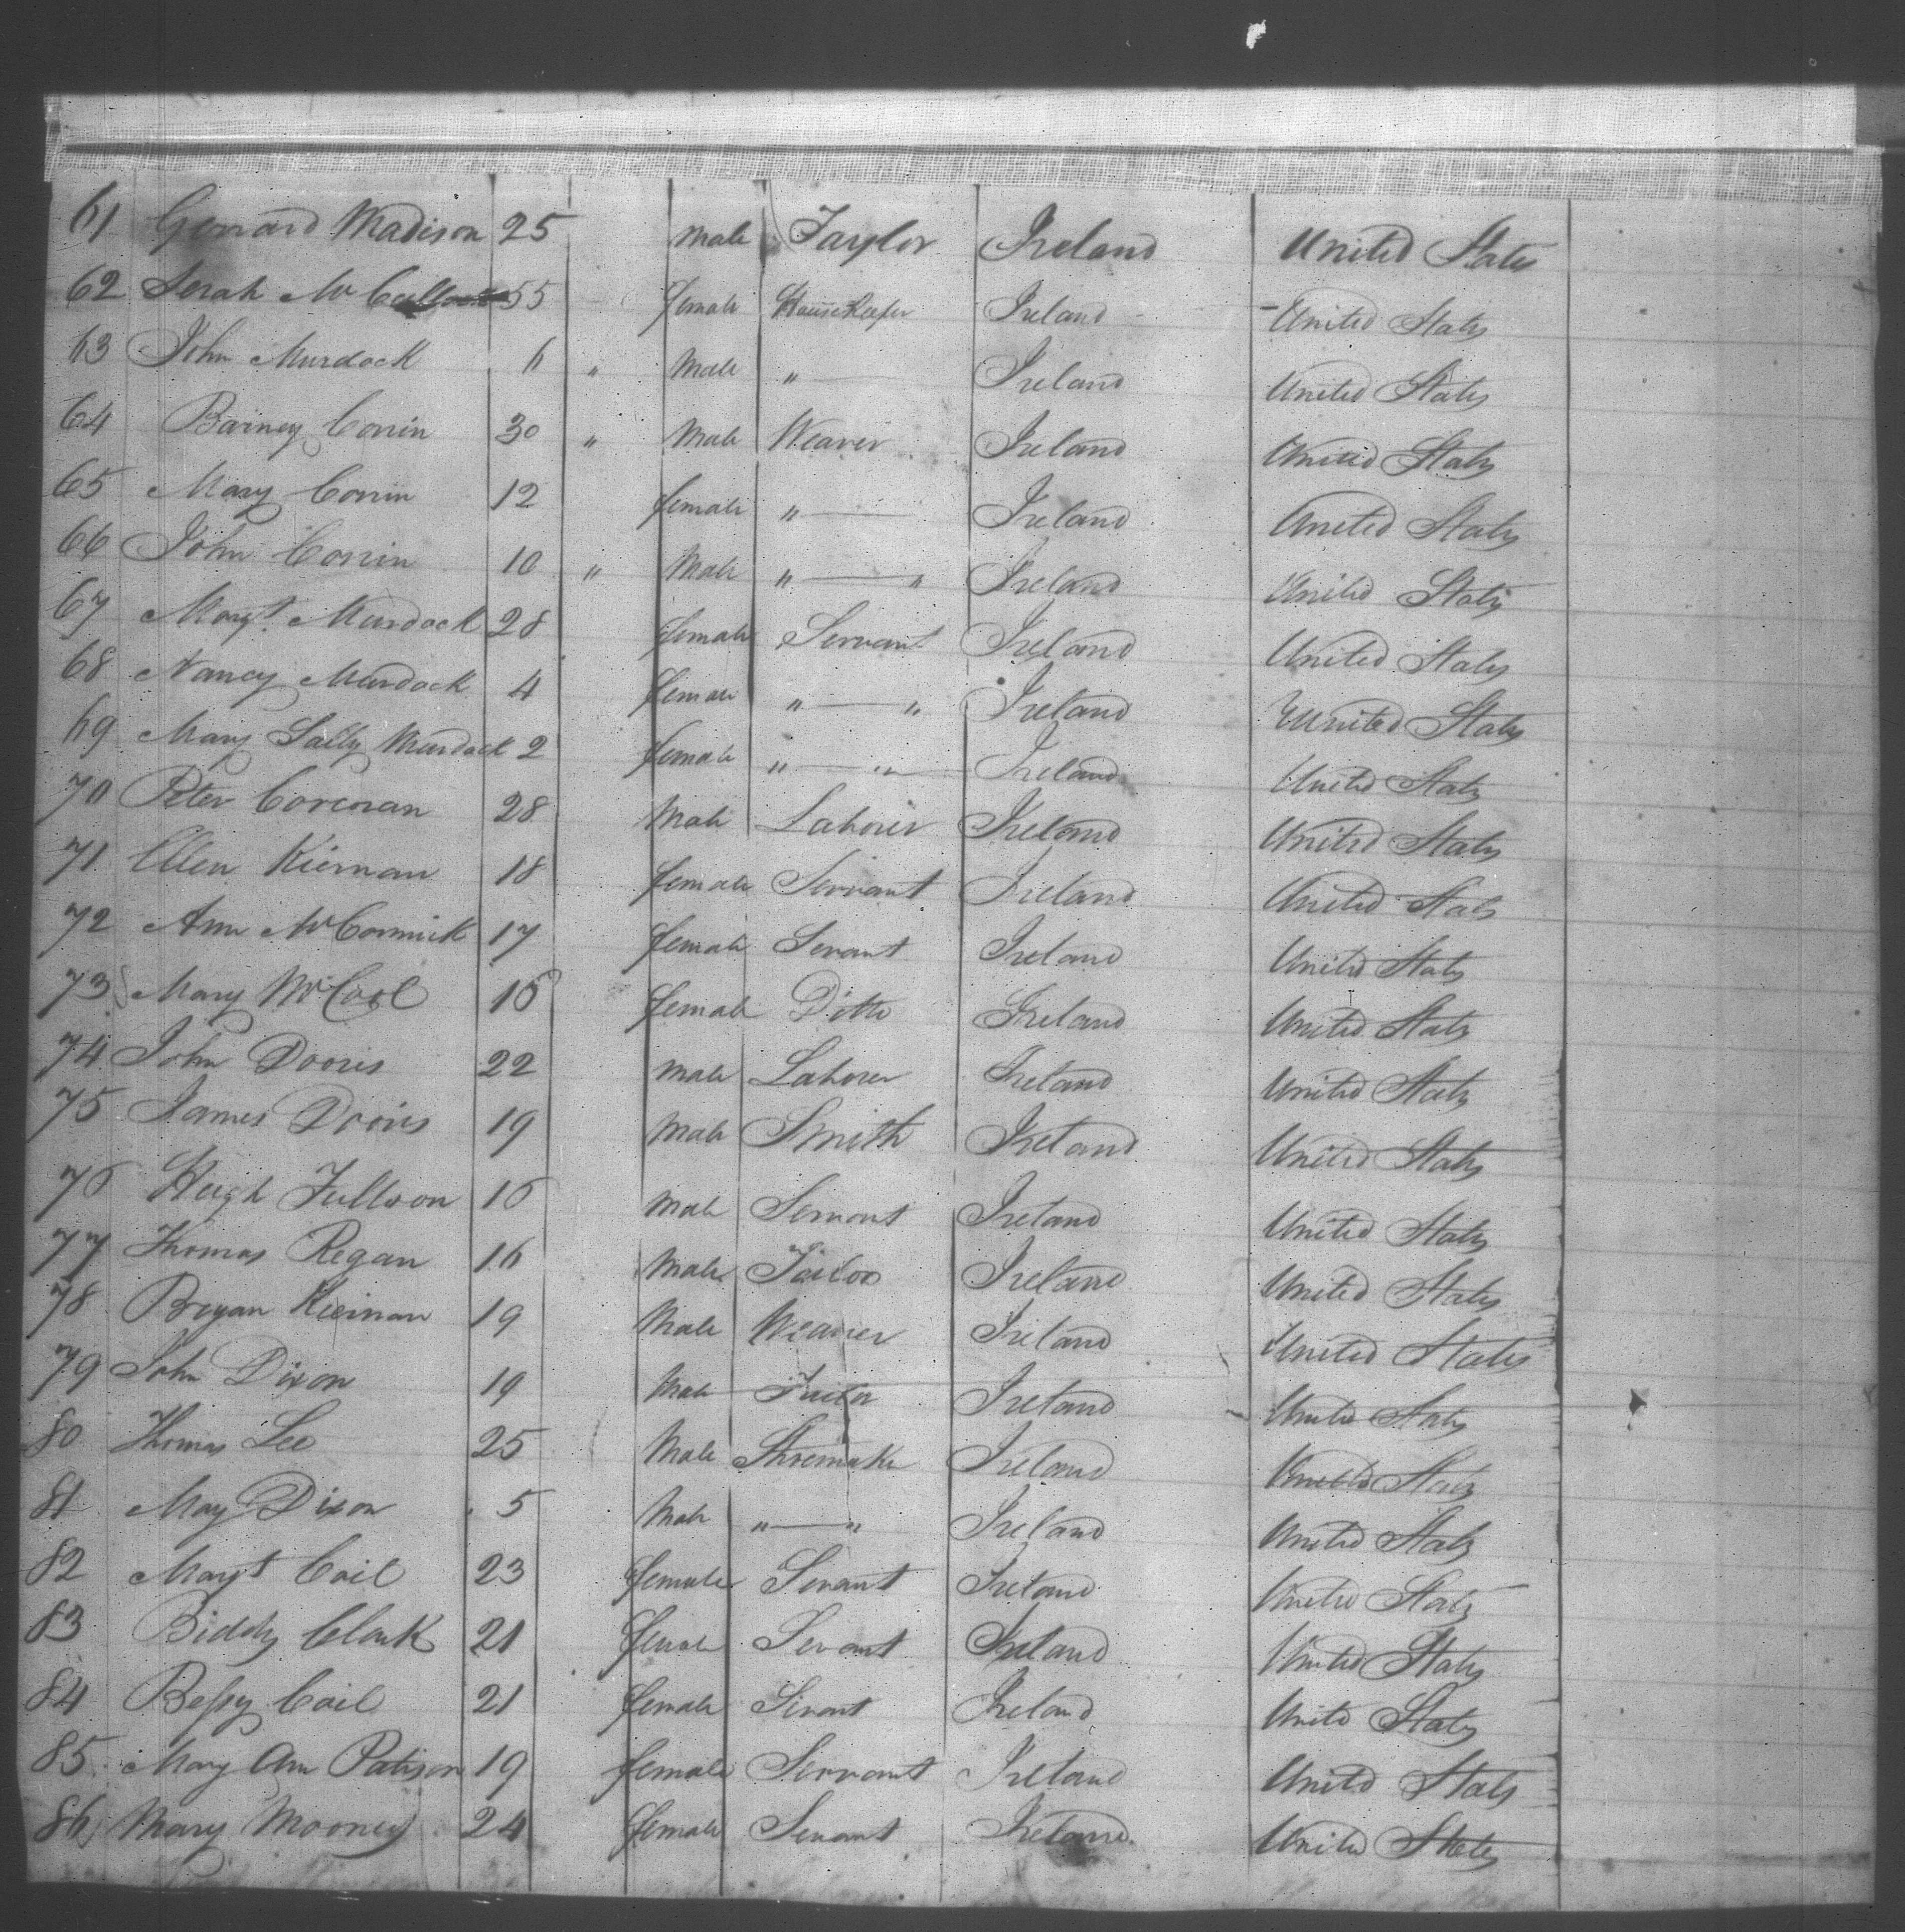 61 Gerrard Madison 25 Male Taylor Ireland United States
62 Serah McCullock 55 female HouseKeefer Ireland United States
63 John Murdock 6 " Male " Ireland United States
64 Barney Corrin 30 " Male Weaver Ireland United States
65 Mary Corrin 12 female " Ireland United States
66 John Corrin 10 " Male " " Ireland United States
67 Margt Murdock 28 female Servant Ireland United States
68 Nancy Murdock 4 female " " Ireland United States
69 Mary Sally Murdock 2 female " " Ireland United States
70 Peter Corcoran 28 Male Laborer Ireland United States
71 Ellen Kiernan 18 female Servant Ireland United States
72 Ann McCormick 17 female Servant Ireland United States
73 Mary McCool 16 female Ditto Ireland United States
74 John Dooris 22 Male Laborer Ireland United States
75 James Dooris 19 Male Smith Ireland United States
76 Hugh Fullson 16 Male Servant Ireland United States
77 Thomas Regan 16 Male Tailor Ireland United States
78 Bryan Kiernan 19 Male Weaver Ireland United States
79 John Dixon 19 Male Tailor Ireland United States
80 Thomas Lee 25 Male Shoemaker Ireland United States
81 May Dixon 5 Male " " Ireland United States
82 Margt Coil 23 female Servant Ireland United States
83 Biddy Clark 21 female Servant Ireland United States
84 Bessy Coil 21 female Servant Ireland United States
85 Mary Ann Patison 19 female Servant Ireland United States
86 Mary Mooney 24 female Servant Ireland United States